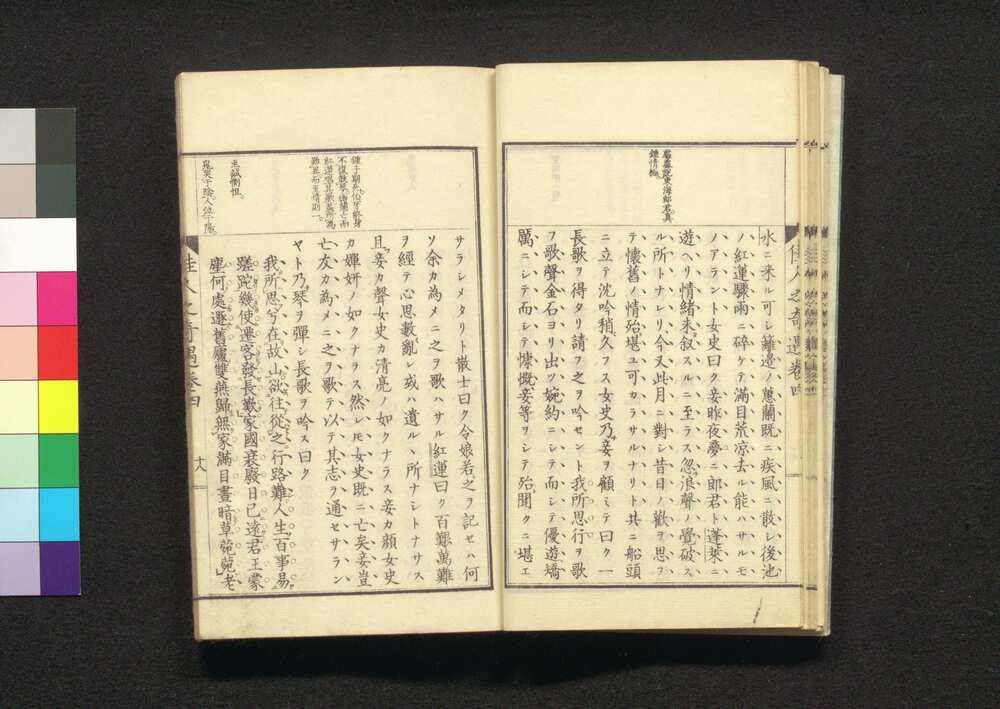 水ニ来ル可シ籬邊ノ蕙蘭既ニ疾風ニ散シ後池
ノ紅蓮驟雨ニ碎ケテ滿目荒凉去ル能ハサルモ
ノアラント女史曰ク妾昨夜夢ニ郎君ト蓬萊ニ
遊ヘリ情緒未タ叙スルニ至ラス忽チ浪聲ノ覺破ス
ル所トナレリ今又此月ニ對シ昔日ノ歡ヲ思フ
テ懷舊ノ情殆ト堪ユ可カラサルナリト共ニ船頭
ニ立テ沈吟稍久フス女史乃チ妾ヲ顧ミテ曰ク一
長歌ヲ得タリ請フ之ヲ吟セント我所思行ヲ歌
フ歌聲金石ヨリ出ツ婉約ニシテ而シテ優遊矯
厲ニシテ而シテ慷慨妾等ヲシテ殆ト聞クニ堪エ
佳人之奇遇卷四
サラシメタリト散士曰ク令娘若シ之ヲ記セハ何
ソ余カ為メニ之ヲ歌ハサル紅蓮曰ク百艱萬難
ヲ經テ心思數亂レ或ハ遺ルヽ所ナシトナサス
且ツ妾カ聲女史カ清亮ノ如クナラス妾カ顏女史
カ嬋妍ノ如クナラス然レモ女史既ニ亡矣妾豈
亡友カ為メニ之ヲ歌テ以テ其志ヲ通セサラン
ヤト乃チ琴ヲ彈シ長歌ヲ吟ス曰ク
我所思兮在故山欲往從之行路難人生百事易
蹉跎幾使遷客發長歎家國衰廢日已遠君王蒙
塵何處遷舊廬雙燕歸無家滿目晝暗草菀菀老
鍾子期死伯牙終身
不復鼓琴幽蘭亡而
紅蓮唱其歌其所為
雖異而至情則一
至誠惻怛
鬼哭于陰人泣于陽
佳人之奇遇卷四
十八